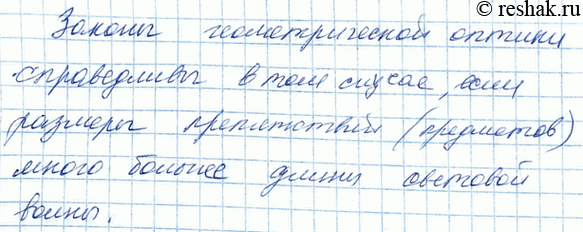 reshak.ru
Законы геометрической оптики
справедливы в том случае, если
размеры препятствий (предметов)
много больше длины световой
волны.